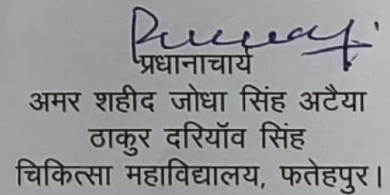 प्रधानाचार्य
अमर शहीद जोधा सिंह अटैया
ठाकुर दरियॉव सिंह
चिकित्सा महाविद्यालय, फतेहपुर।